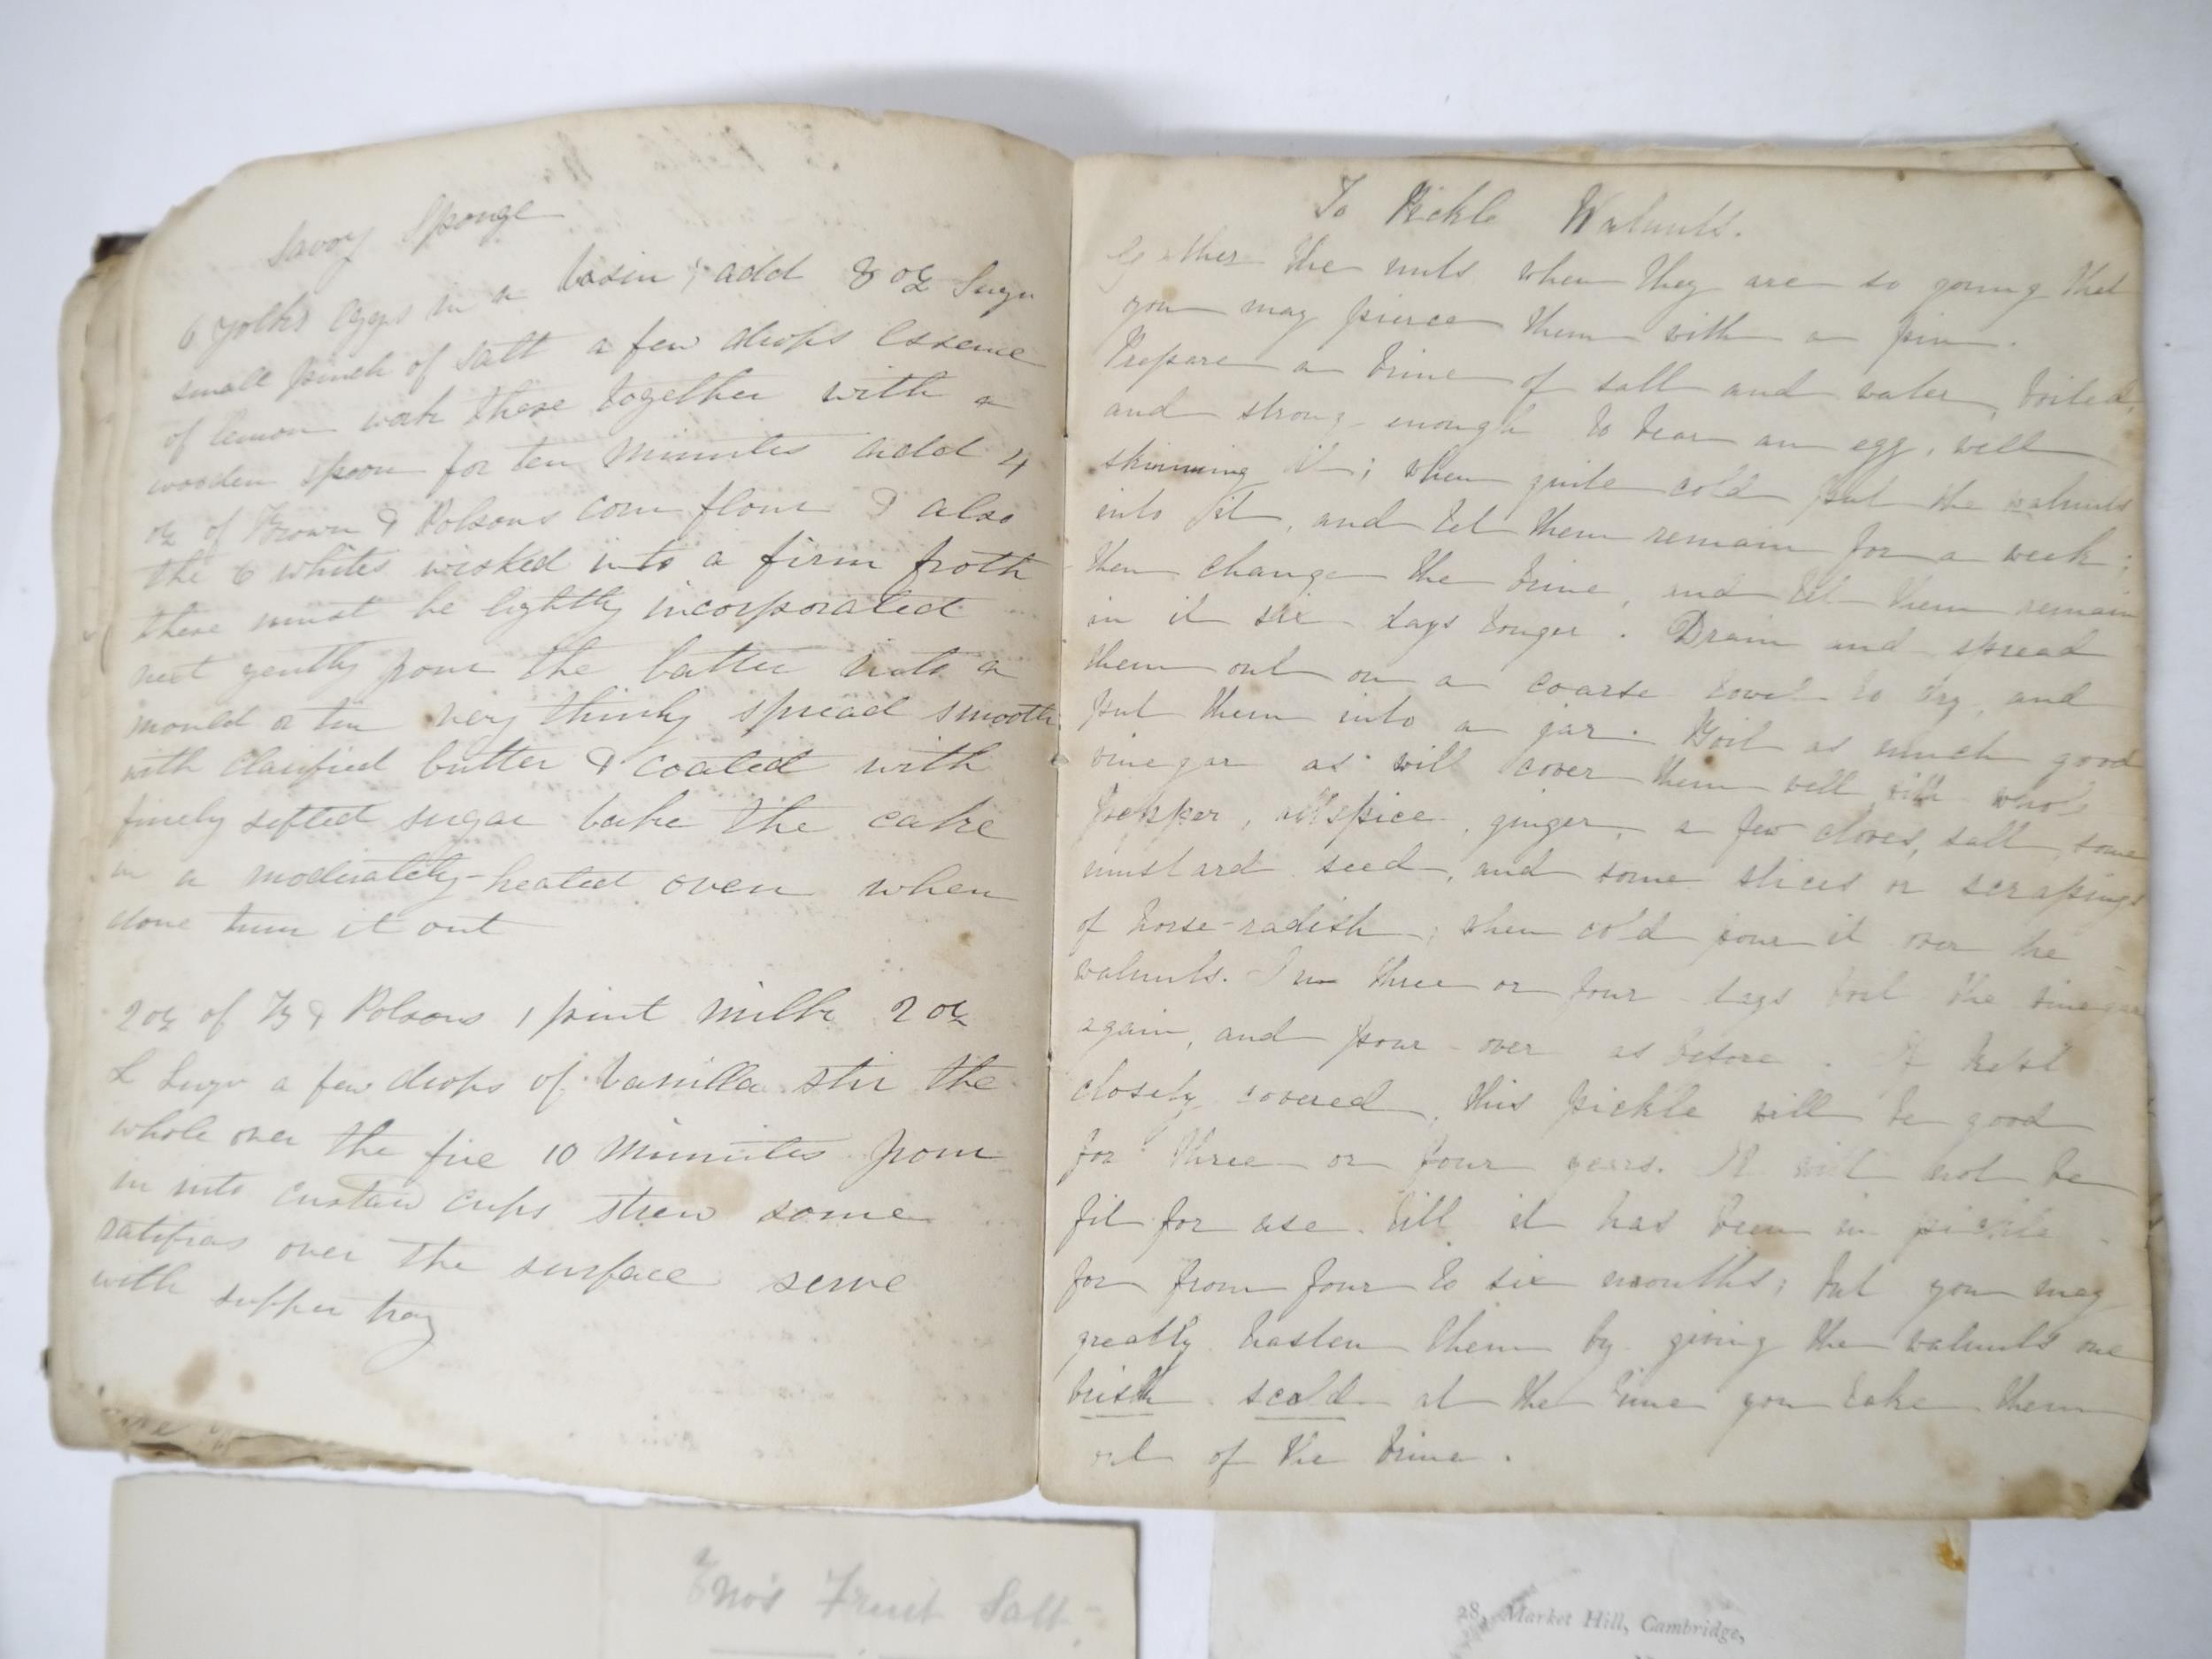 Savoy Sponge
6 yolks Eggs in a basin, add 8 oz Sugr
small pinch of salt a few drops Essence
of lemon work these together with a
wooden spoon for ten Minutes add 4
oz of Brown & Polsons corn flour & also
the 6 whites wisked into a firm froth
these must be lightly incorporated
next gently pour the batter into a
mould a tin very thinly spread smooth
with clarified butter & coated with
finely sifted sugar bake the cake
in a moderately-heated oven when
done turn it out
2 oz of B & Polsons 1 pint Milk 2 oz
L Sugr a few drops of Vanilla stir the
whole over the fire 10 Minutes pour
in into custard cups strew some
ratifias over the surface serve
with supper tray
To Pickle Walnuts.
Gather the nuts when they are so young that
you may pierce them with a pin.
Prepare a brine of salt and water, boiled,
and strong enough to bear an egg, well
skimming it; when quite cold put the walnuts
into it, and let them remain for a week;
then change the brine, and let them remain
in it six days longer. Drain and spread
them out on a coarse towel to dry, and
put them into a jar. Boil as much good
vinegar as will cover them well with whole
pepper, allspice, ginger, a few cloves, salt, some
mustard seed, and some slices or scrapings
of horse-radish; when cold pour it over the
walnuts. In three or four days boil the vinegar
again, and pour over as before. If kept
closely covered, this pickle will be good
for three or four years. It will not be
fit for use till it has been in pickle
for from four to six months; but you may
greatly hasten them by giving the walnuts one
brisk scald at the time you take them
out of the brine.
Eno's Fruit Salt
28, Market Hill, Cambridge,